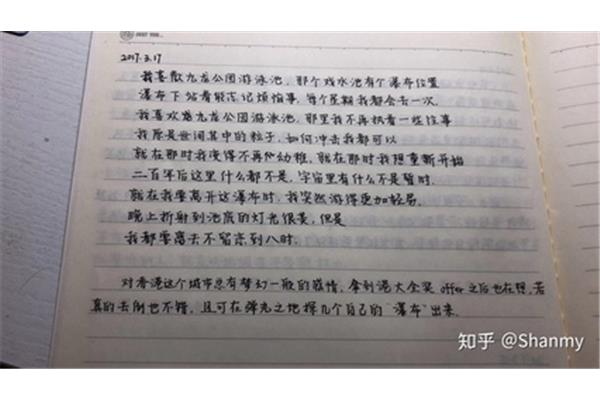 JUST YOU...
2017.3.17
我喜欢九龙公园游泳池，那个戏水池有个瀑布位置
瀑布下站着能忘记烦恼事，每个星期我都会去一次
我喜欢九龙公园游泳池，那里我不再执着一些往事
我原是世间其中的粒子，如何冲击我都可以
就在那时我变得不再怕幼稚，就在那时我想重新开始
二百年后这里什么都不是，宇宙里有什么不是暂时
就在我要离开这瀑布时，我突然游得更加轻易
晚上折射到池底的灯光很美，但是
我都要离去不留恋到八时。
对香港这个城市总有梦幻一般的感情，拿到港大全奖offer之后也在想，若
真的去倒也不错，且可在弹丸之地探几个自己的“瀑布”出来。
知乎 @Shanmy